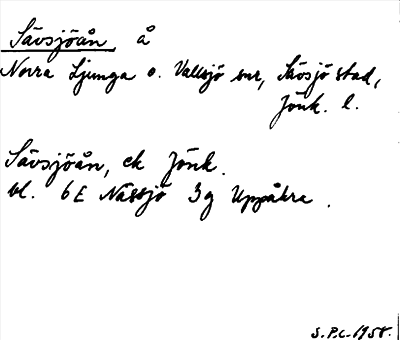 Sävsjöån, å
Norra Ljunga o. Vallsjö snr, Sävsjö stad,
Jönk. l.
Sävsjöån, ek Jönk.
bl. 6E Nässjö 3g Uppåkra.
S.P.C. 1958.